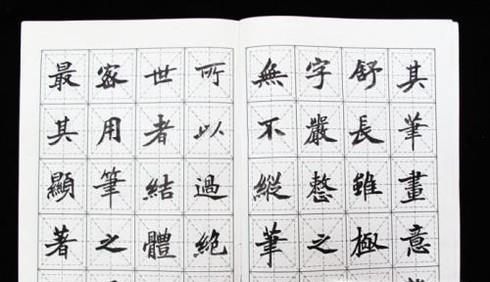 其筆畫意
舒長雖極
字嚴整之
無不縱筆
所以過絶
世者結體
密用筆之
最其顯著